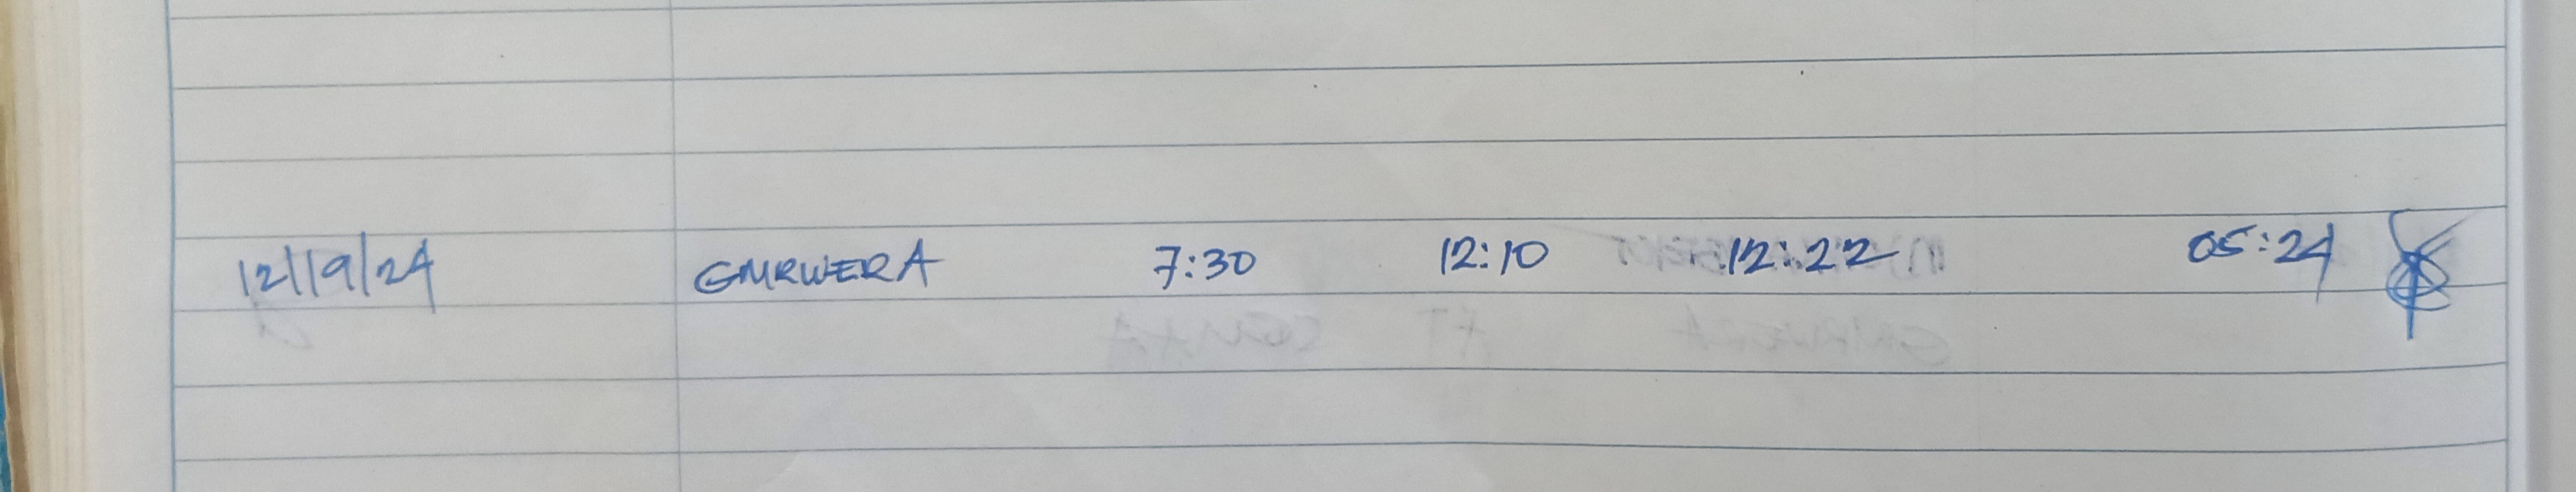 12/19/24 GMRWERA 7:30 12:10 12:22 05:24